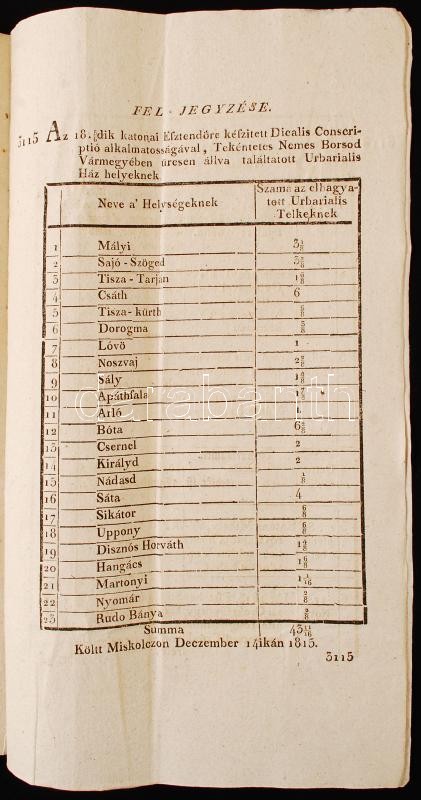 FEL-JEGYZÉSE.
3115 Az 18. dik katonai Esztendőre készitett Dicalis Conscri-
ptió alkalmatosságával, Tekéntetes Nemes Borsod
Vármegyében üresen állva találtatott Urbarialis
Ház helyeknek
Neve a' Helységeknek Száma az elhagya-
tott Urbarialis
Telkeknek
1 Mályi
2 Sajó-Szöged
3 Tisza-Tarján
4 Csáth 6
5 Tisza-kürth
6 Dorogma
7 Lövö 1
8 Noszvaj
9 Sály
10 Apáthfala
11 Arló 1
12 Bóta
13 Csernel 2
14 Királyd 2
15 Nádasd 1/8
16 Sáta 4
17 Sikátor 6/8
18 Uppony 6/8
19 Disznós Horváth
20 Hangács 1 6/8
21 Martonyi
22 Nyomár 2/8
23 Rudo Bánya
Summa 43 11/16
Költt Miskolczon Deczember 14ikán 1815.
3115
darabanth